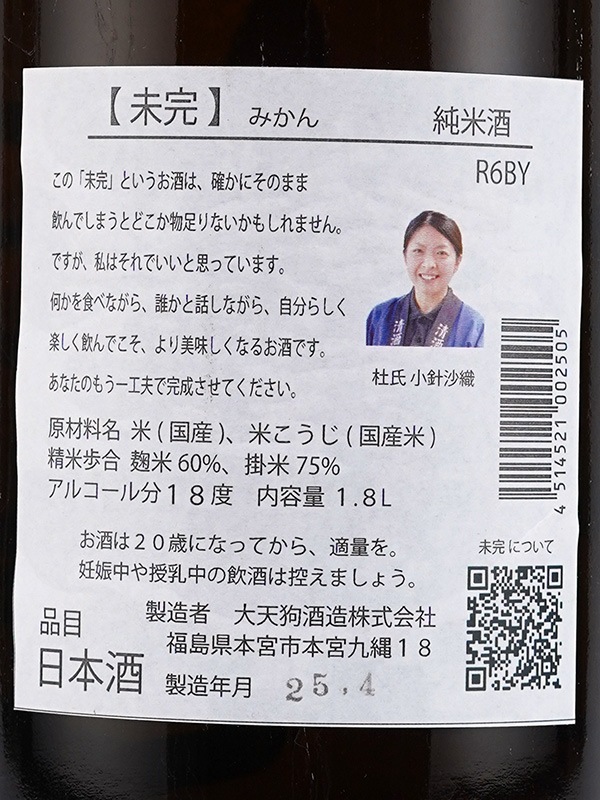 【未完】 みかん 純米酒
R6BY
この「未完」というお酒は、確かにそのまま
飲んでしまうとどこか物足りないかもしれません。
ですが、私はそれでいいと思っています。
何かを食べながら、誰かと話しながら、自分らしく
楽しく飲んでこそ、より美味しくなるお酒です。
あなたのもう一工夫で完成させてください。
清酒 清酒
杜氏 小針沙織
原材料名 米(国産)、米こうじ(国産米)
精米歩合 麹米60%、掛米75%
アルコール分18度 内容量 1.8L
4 514521 002505
お酒は20歳になってから、適量を。
妊娠中や授乳中の飲酒は控えましょう。
未完 について
品目
日本酒
製造者 大天狗酒造株式会社
福島県本宮市本宮九縄18
製造年月 25.4